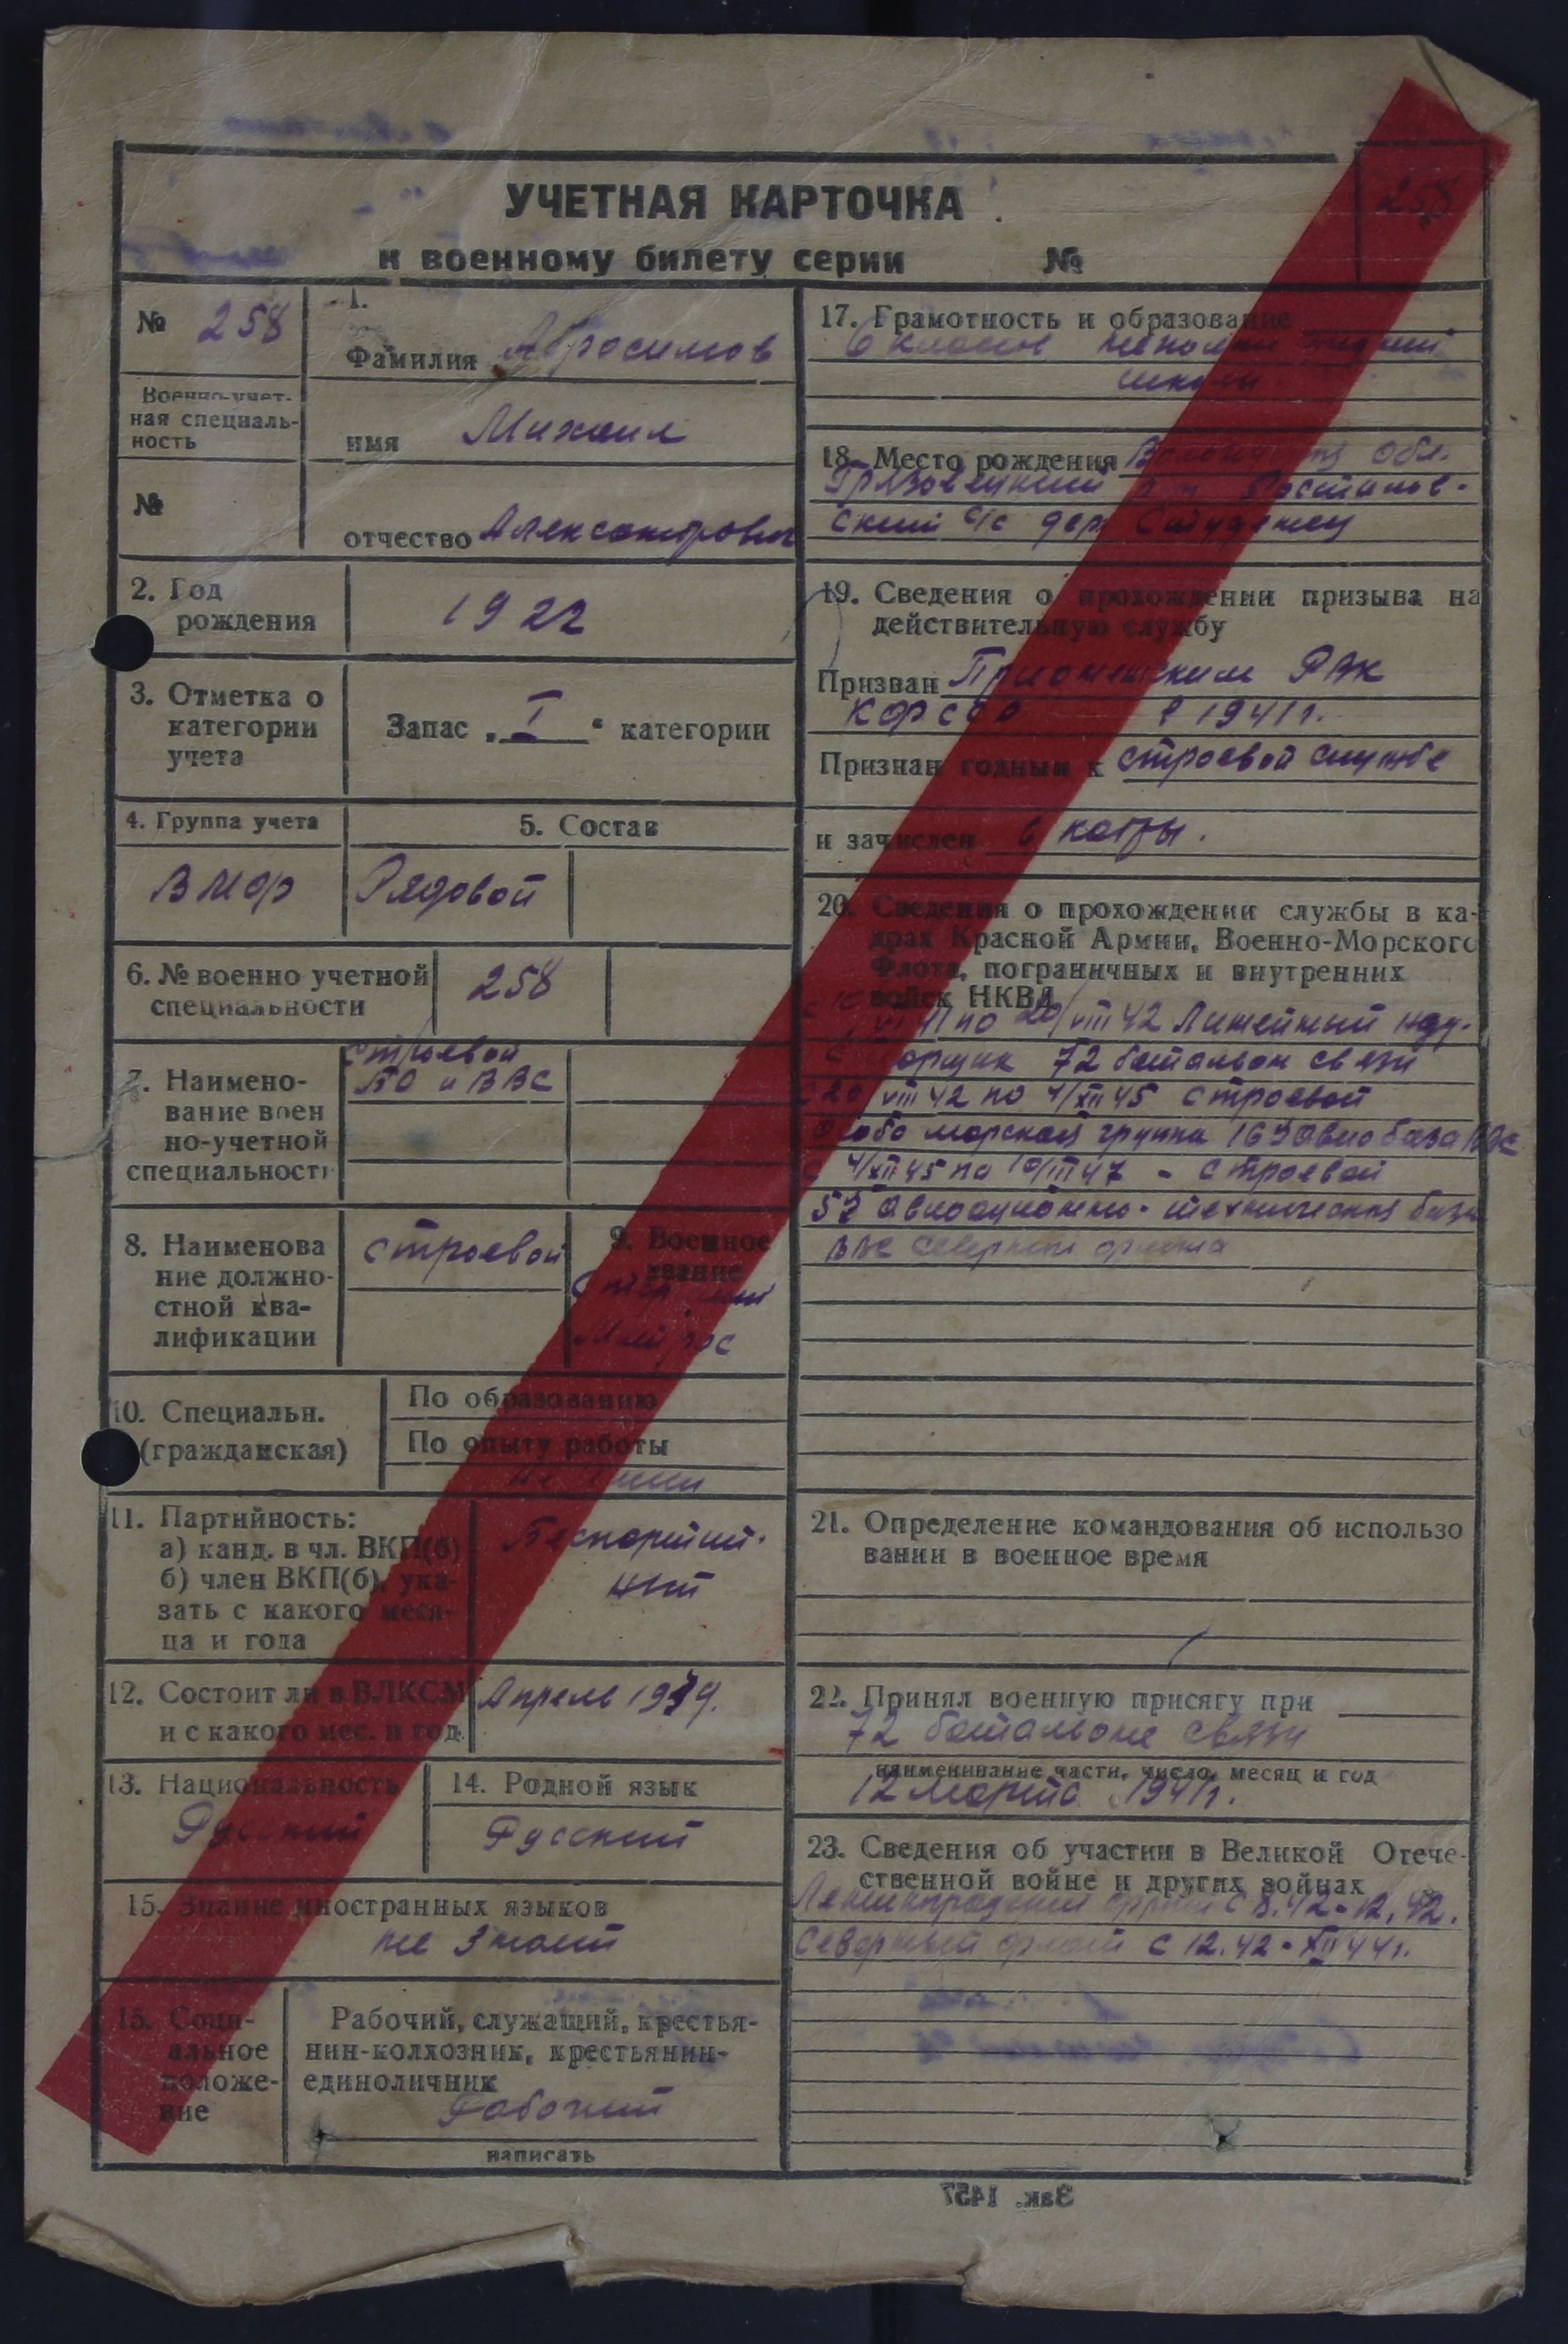 УЧЕТНАЯ КАРТОЧКА
к военному билету серии №
258
№ 258
1.
Фамилия Абросимов
Военно-учет-
ная специаль-
ность
имя Михаил
№
отчество Александрович
2. Год
рождения
1922
3. Отметка о
категории
учета
Запас „ I “ категории
4. Группа учета
5. Состав
ВМФ
Рядовой
6. № военно учетной
специальности
258
7. Наимено-
вание воен
но-учетной
специальности
Строевой
БО и ВВС
8. Наименова
ние должно-
стной ква-
лификации
Строевой
9. Военное
звание
Старший
Матрос
10. Специальн.
(гражданская)
По образованию
По опыту работы
11. Партийность:
а) канд. в чл. ВКП(б)
б) член ВКП(б), ука-
зать с какого меся-
ца и года
Беспартий-
ный
12. Состоит ли в ВЛКСМ
и с какого мес. и год.
Апрель
13. Национальность
Русский
14. Родной язык
Русский
15. Знание иностранных языков
не знает
15. Соци-
альное
положе-
ние
Рабочий, служащий, крестья-
нин-колхозник, крестьянин-
единоличник
Рабочий
написать
17. Грамотность и образование
6 классов
школы.
18. Место рождения Вологодская обл.
Грязовецкий р-н Ростилов-
ский с/с дер. Студенец
19. Сведения о прохождении призыва на
действительную службу
Призван Прионежским РВК
КФССР в 1941 г.
Признан годным к строевой службе
и зачислен в кадры.
20. Сведения о прохождении службы в ка-
драх Красной Армии, Военно-Морского
Флота, пограничных и внутренних
войск НКВД
по 20/VIII 42 Линейный над-
смотрщик 72 батальон связи
С 20 VIII 42 по 4/XII 45 строевой
морская группа авиобаза ВВС
С 4/XII 45 по 10/III 47 - строевой
авиационно-техническая база
ВВС Северного флота
21. Определение командования об использо
вании в военное время
22. Принял военную присягу при
72 батальоне связи
наименивание части, число, месяц и год
12 марта 1941 г.
23. Сведения об участии в Великой Отече-
ственной войне и других войнах
Ленинградский фронт с 8.42-12.42.
Северный флот с 12.42-XII 44 г.
Зак. 1457